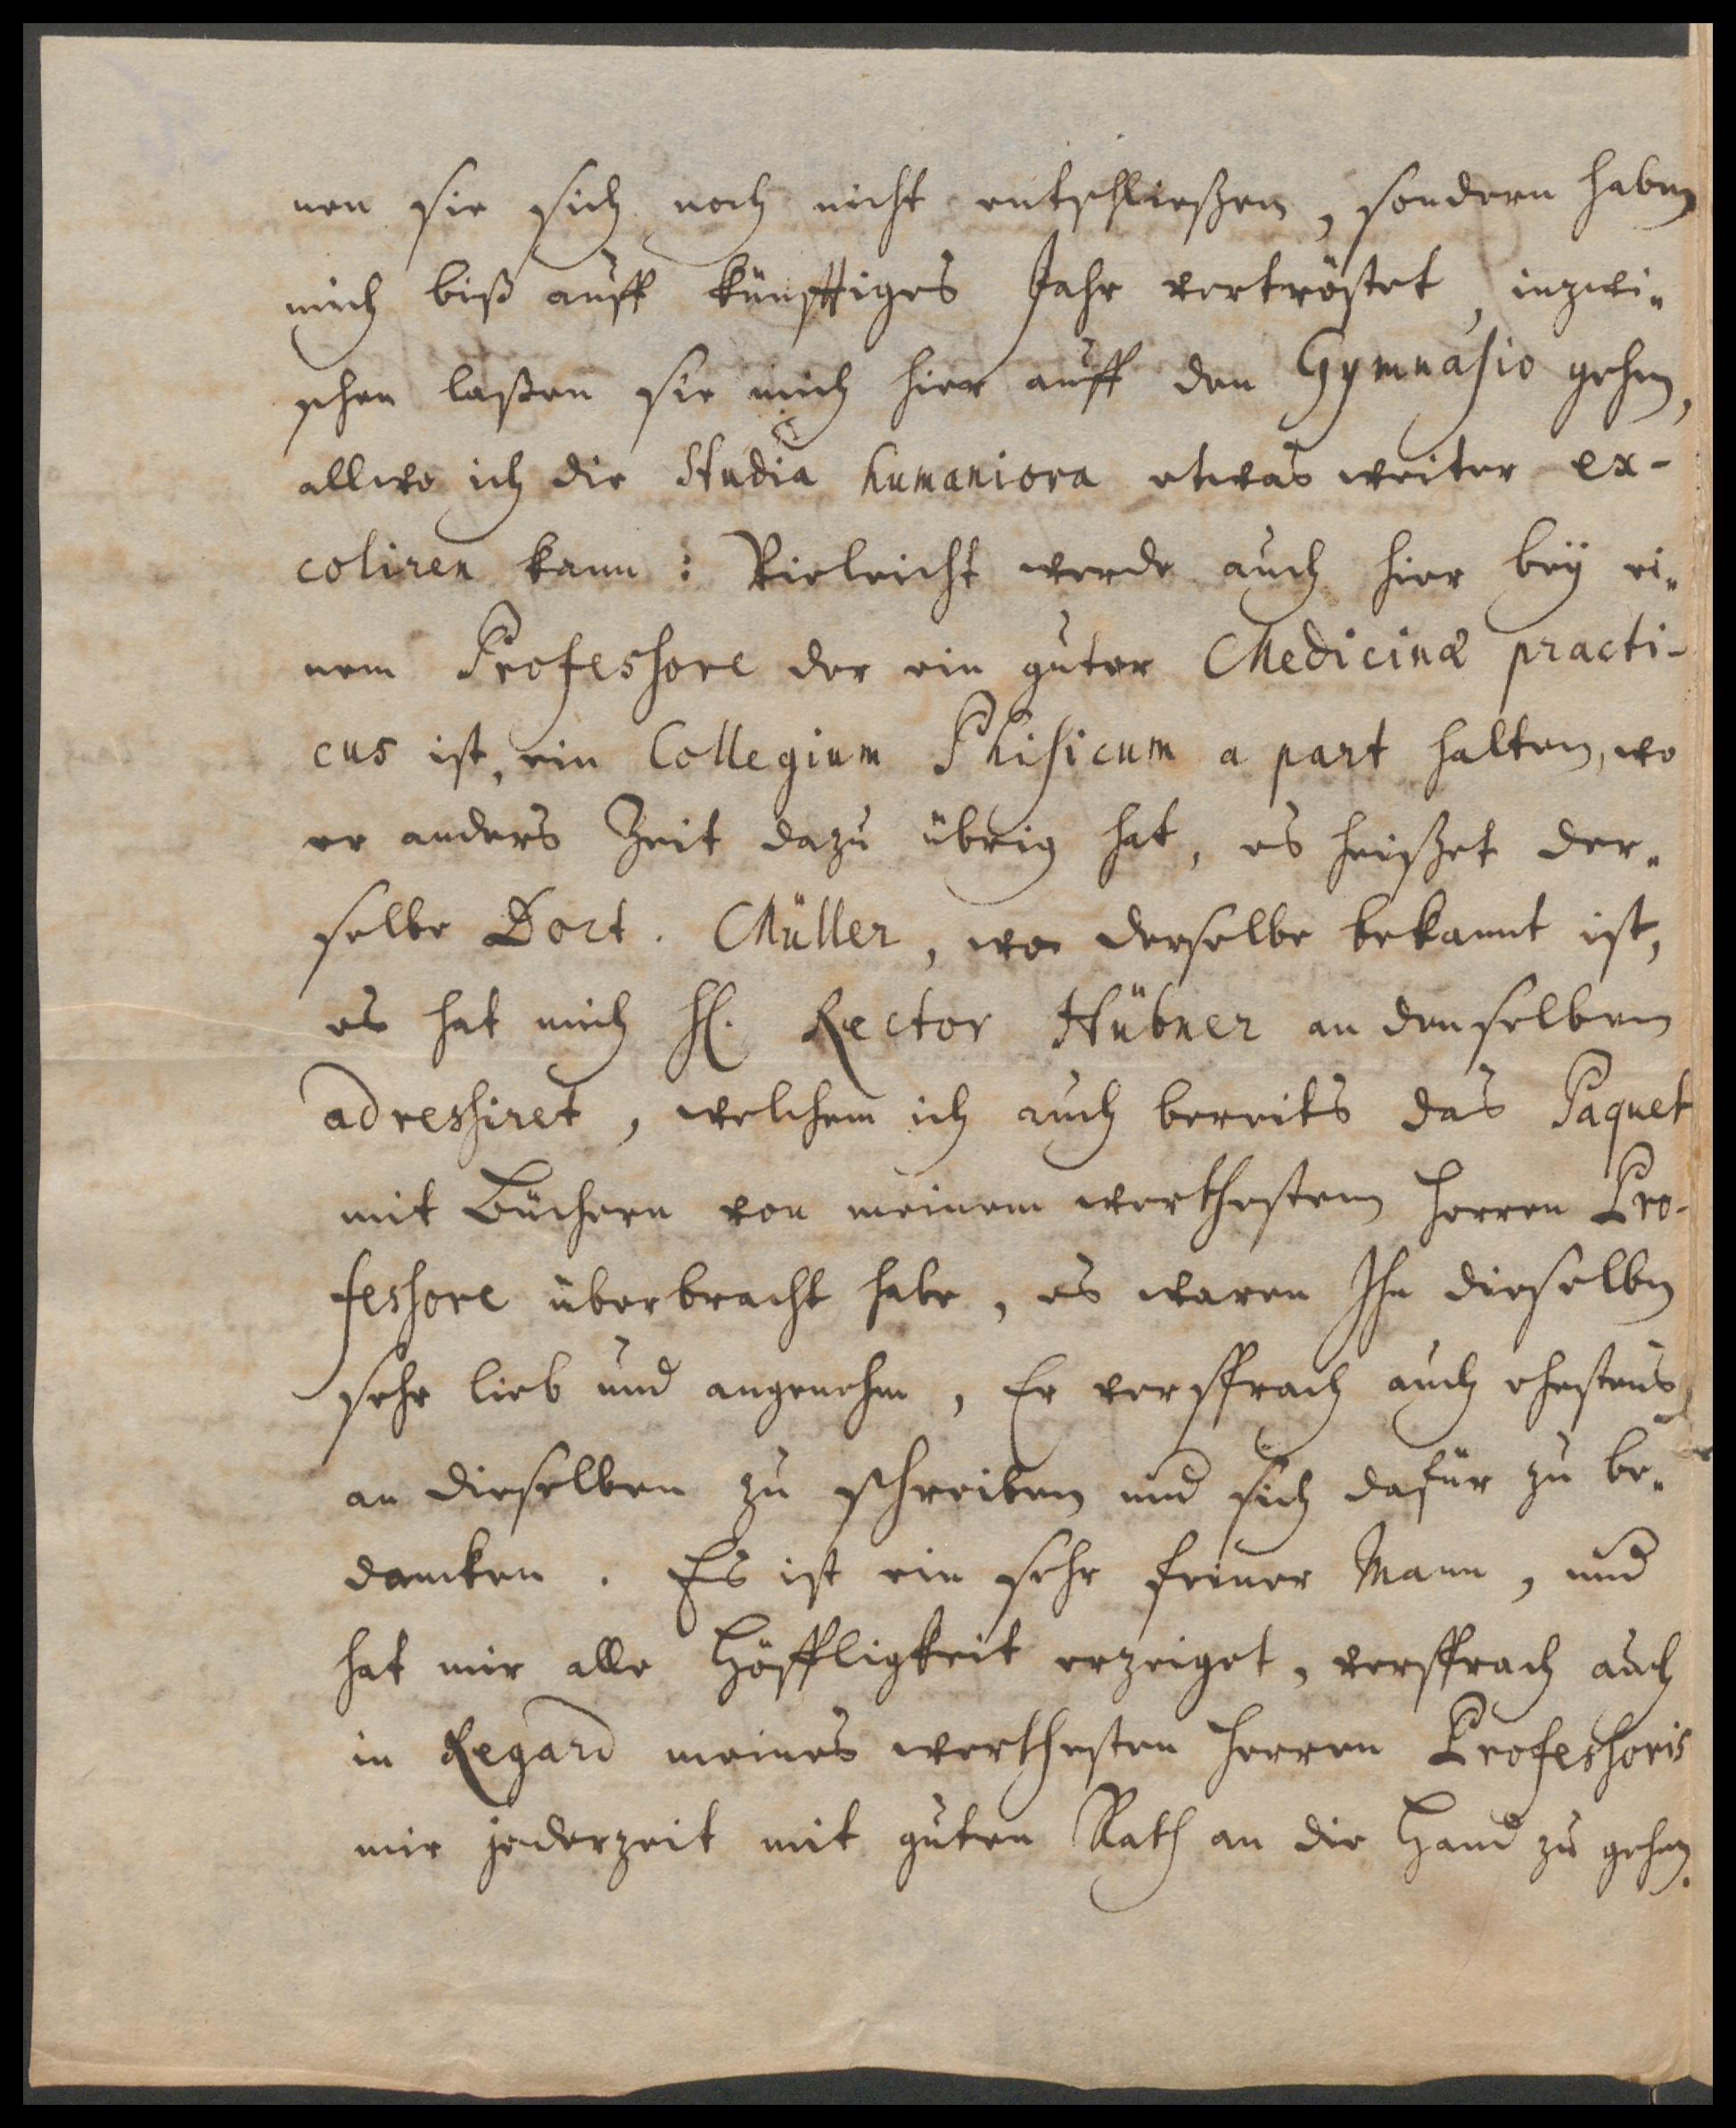 nen sie sich noch nicht entschließen, sondern haben
mich biß auff künfftiges Jahr vertröstet, inzwi-
schen laßen sie mich hier auff den Gymnasio gehen,
allwo ich die Studia humaniora etwas weiter ex-
coliren kann: Vieleicht werde auch hier beÿ ei-
nem Professore der ein guter Medicinæ practi-
cus ist, ein Collegium Phisicum a part halten, wo
er anders Zeit dazu übrig hat, es heißet der-
selbe Doct. Müller, wo derselbe bekannt ist,
es hat mich H. Rector Hübner an denselben
adressiret, welchem ich auch bereits das Paquet
mit Büchern von meinem werthestem Herren Pro-
fessore überbracht habe, es waren Ihn dieselben
sehr lieb und angenehm, Er versprach auch ehestens
an dieselben zu schreiben und sich dafür zu be-
dancken. Es ist ein sehr feiner Mann, und
hat mir alle Höffligkeit erzeiget, versprach auch
in Regard meines werthesten Herren Professoris
mir jederzeit mit guten Rath an die Hand zu gehen.